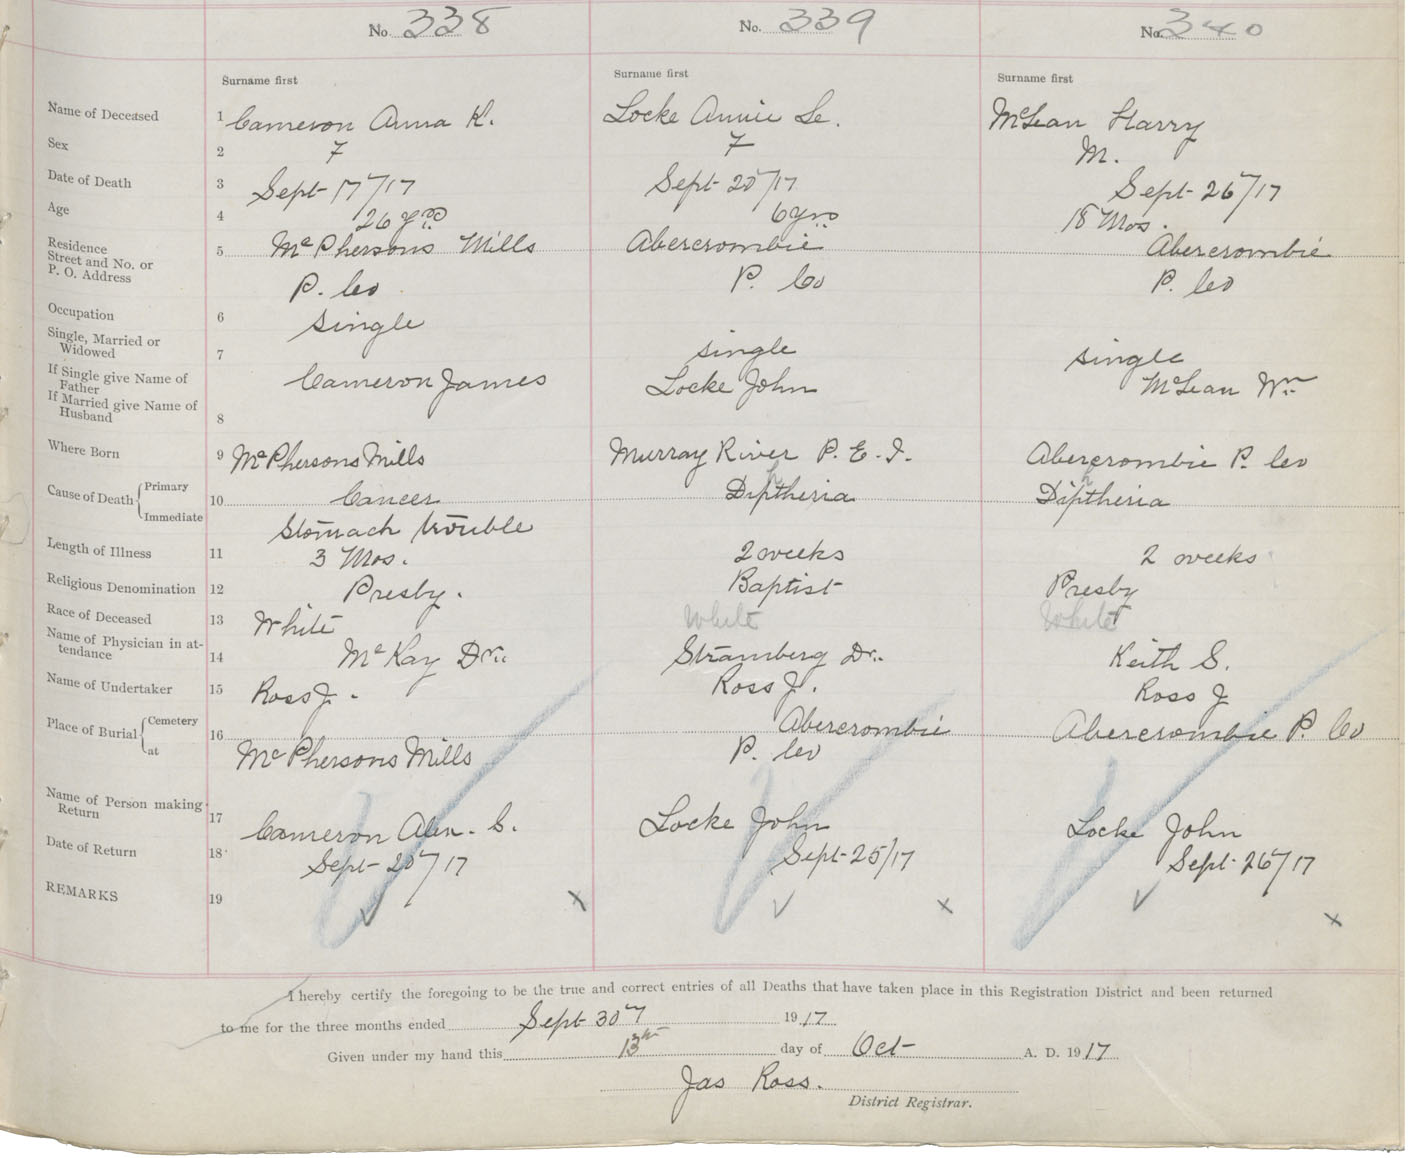 No 338
No. 339
No. 340
Surname first
Surname first
Surname first
Name of Deceased 1 Cameron Anna K. Locke Annie Le. McLean Harry
Sex 2 F F M.
Date of Death 3 Sept 17th/17 Sept 20th/17 Sept 26th/17
Age 4 26 yrs 6 yrs 18 Mos.
Residence
Street and No. or 5 McPhersons Mills Abercrombie Abercrombie
P. O. Address P. Co P. Co P. Co
Occupation 6 Single
Single, Married or
Widowed 7 single single
If Single give Name of
Father Cameron James Locke John McLean Wm
If Married give Name of
Husband 8
Where Born 9 McPhersons Mills Murray River P. E. I. Abercrombie P. Co
Cause of Death { Primary
10 Cancer Diphtheria Diphtheria
Immediate Stomach trouble
Length of Illness 11 3 Mos. 2 weeks 2 weeks
Religious Denomination 12 Presby. Baptist Presby
Race of Deceased 13 White White White
Name of Physician in at-
tendance 14 McKay Dr. Stramberg Dr. Keith S.
Name of Undertaker 15 Ross J. Ross J. Ross J
Place of Burial { Cemetery
16 Abercrombie Abercrombie P. Co
at McPhersons Mills P. Co
Name of Person making
Return 17 Cameron Alex. S. Locke John Locke John
Date of Return 18 Sept 20th/17 Sept 25/17 Sept 26th/17
REMARKS 19
I hereby certify the foregoing to be the true and correct entries of all Deaths that have taken place in this Registration District and been returned
to me for the three months ended Sept 30th 1917
Given under my hand this 13th day of Oct A. D. 1917
Jas Ross.
District Registrar.